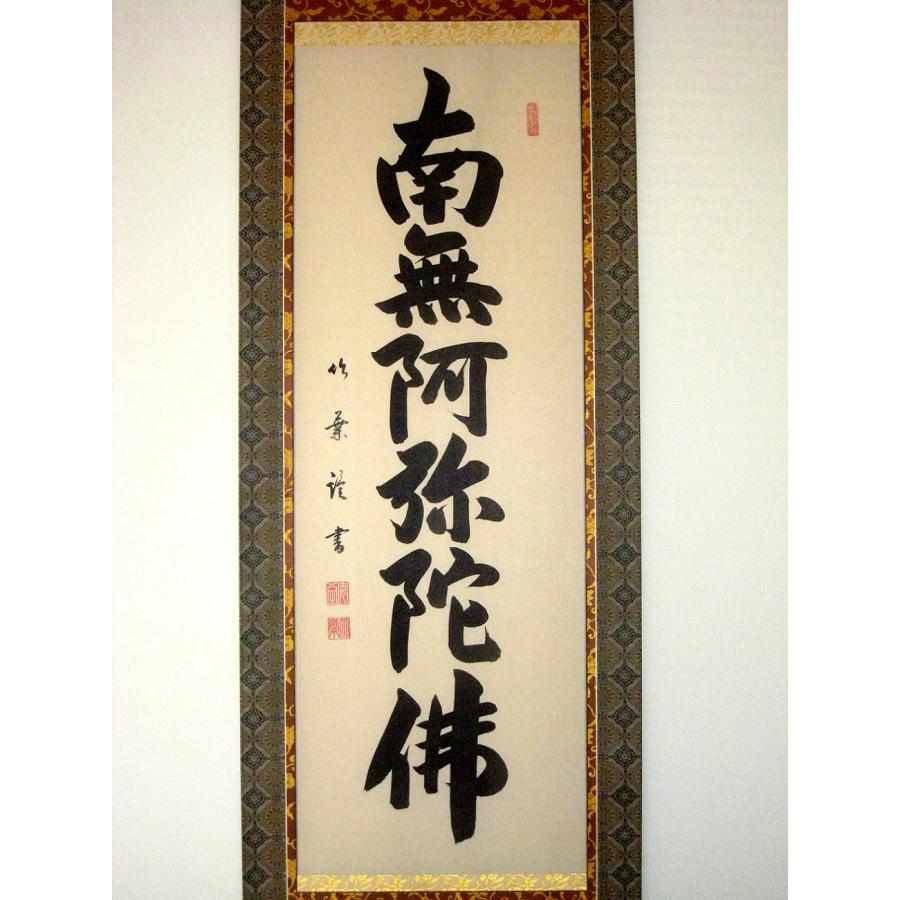 南無阿弥陀佛
竹葉謹書